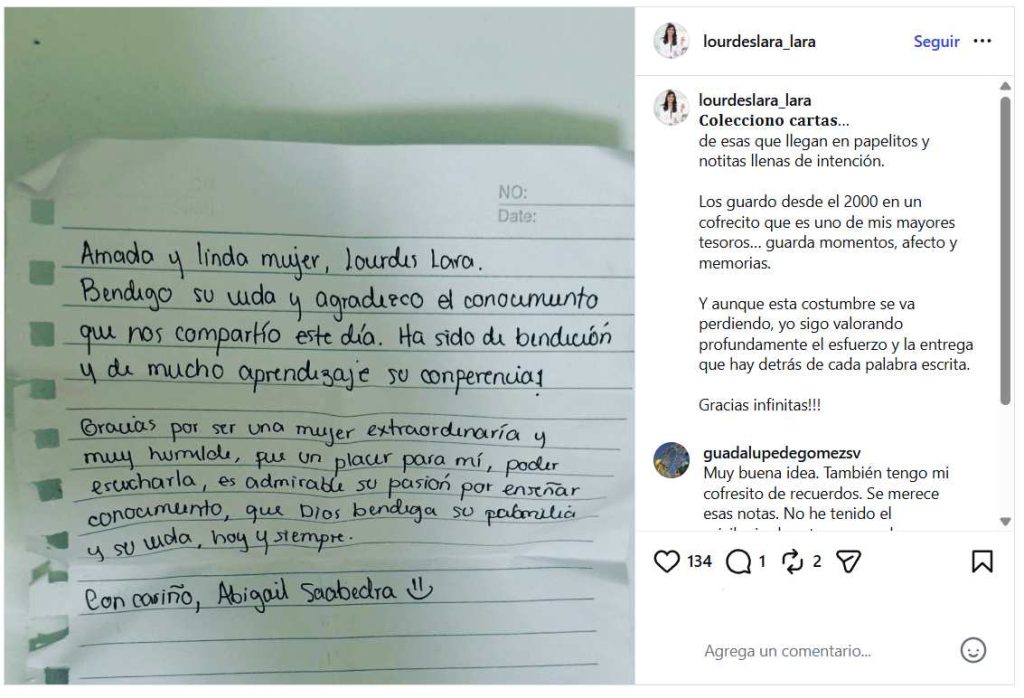 NO:
Date:
Amada y linda mujer, Lourdes Lara.
Bendigo su vida y agradezco el conocimiento
que nos compartío este día. Ha sido de bendición
y de mucho aprendizaje su conferencia!
Gracias por ser una mujer extraordinaría y
muy humilde, fue un placer para mí, poder
escucharla, es admirable su pasión por enseñar
conocimiento, que Dios bendiga su
y su vida, hoy y siempre.
Con cariño, Abigail Saabedra
lourdeslara_lara
Seguir
lourdeslara_lara
Colecciono cartas...
de esas que llegan en papelitos y
notitas llenas de intención.
Los guardo desde el 2000 en un
cofrecito que es uno de mis mayores
tesoros... guarda momentos, afecto y
memorias.
Y aunque esta costumbre se va
perdiendo, yo sigo valorando
profundamente el esfuerzo y la entrega
que hay detrás de cada palabra escrita.
Gracias infinitas!!!
guadalupedegomezsv
Muy buena idea. También tengo mi
cofresito de recuerdos. Se merece
esas notas. No he tenido el
134
1
2
Agrega un comentario...